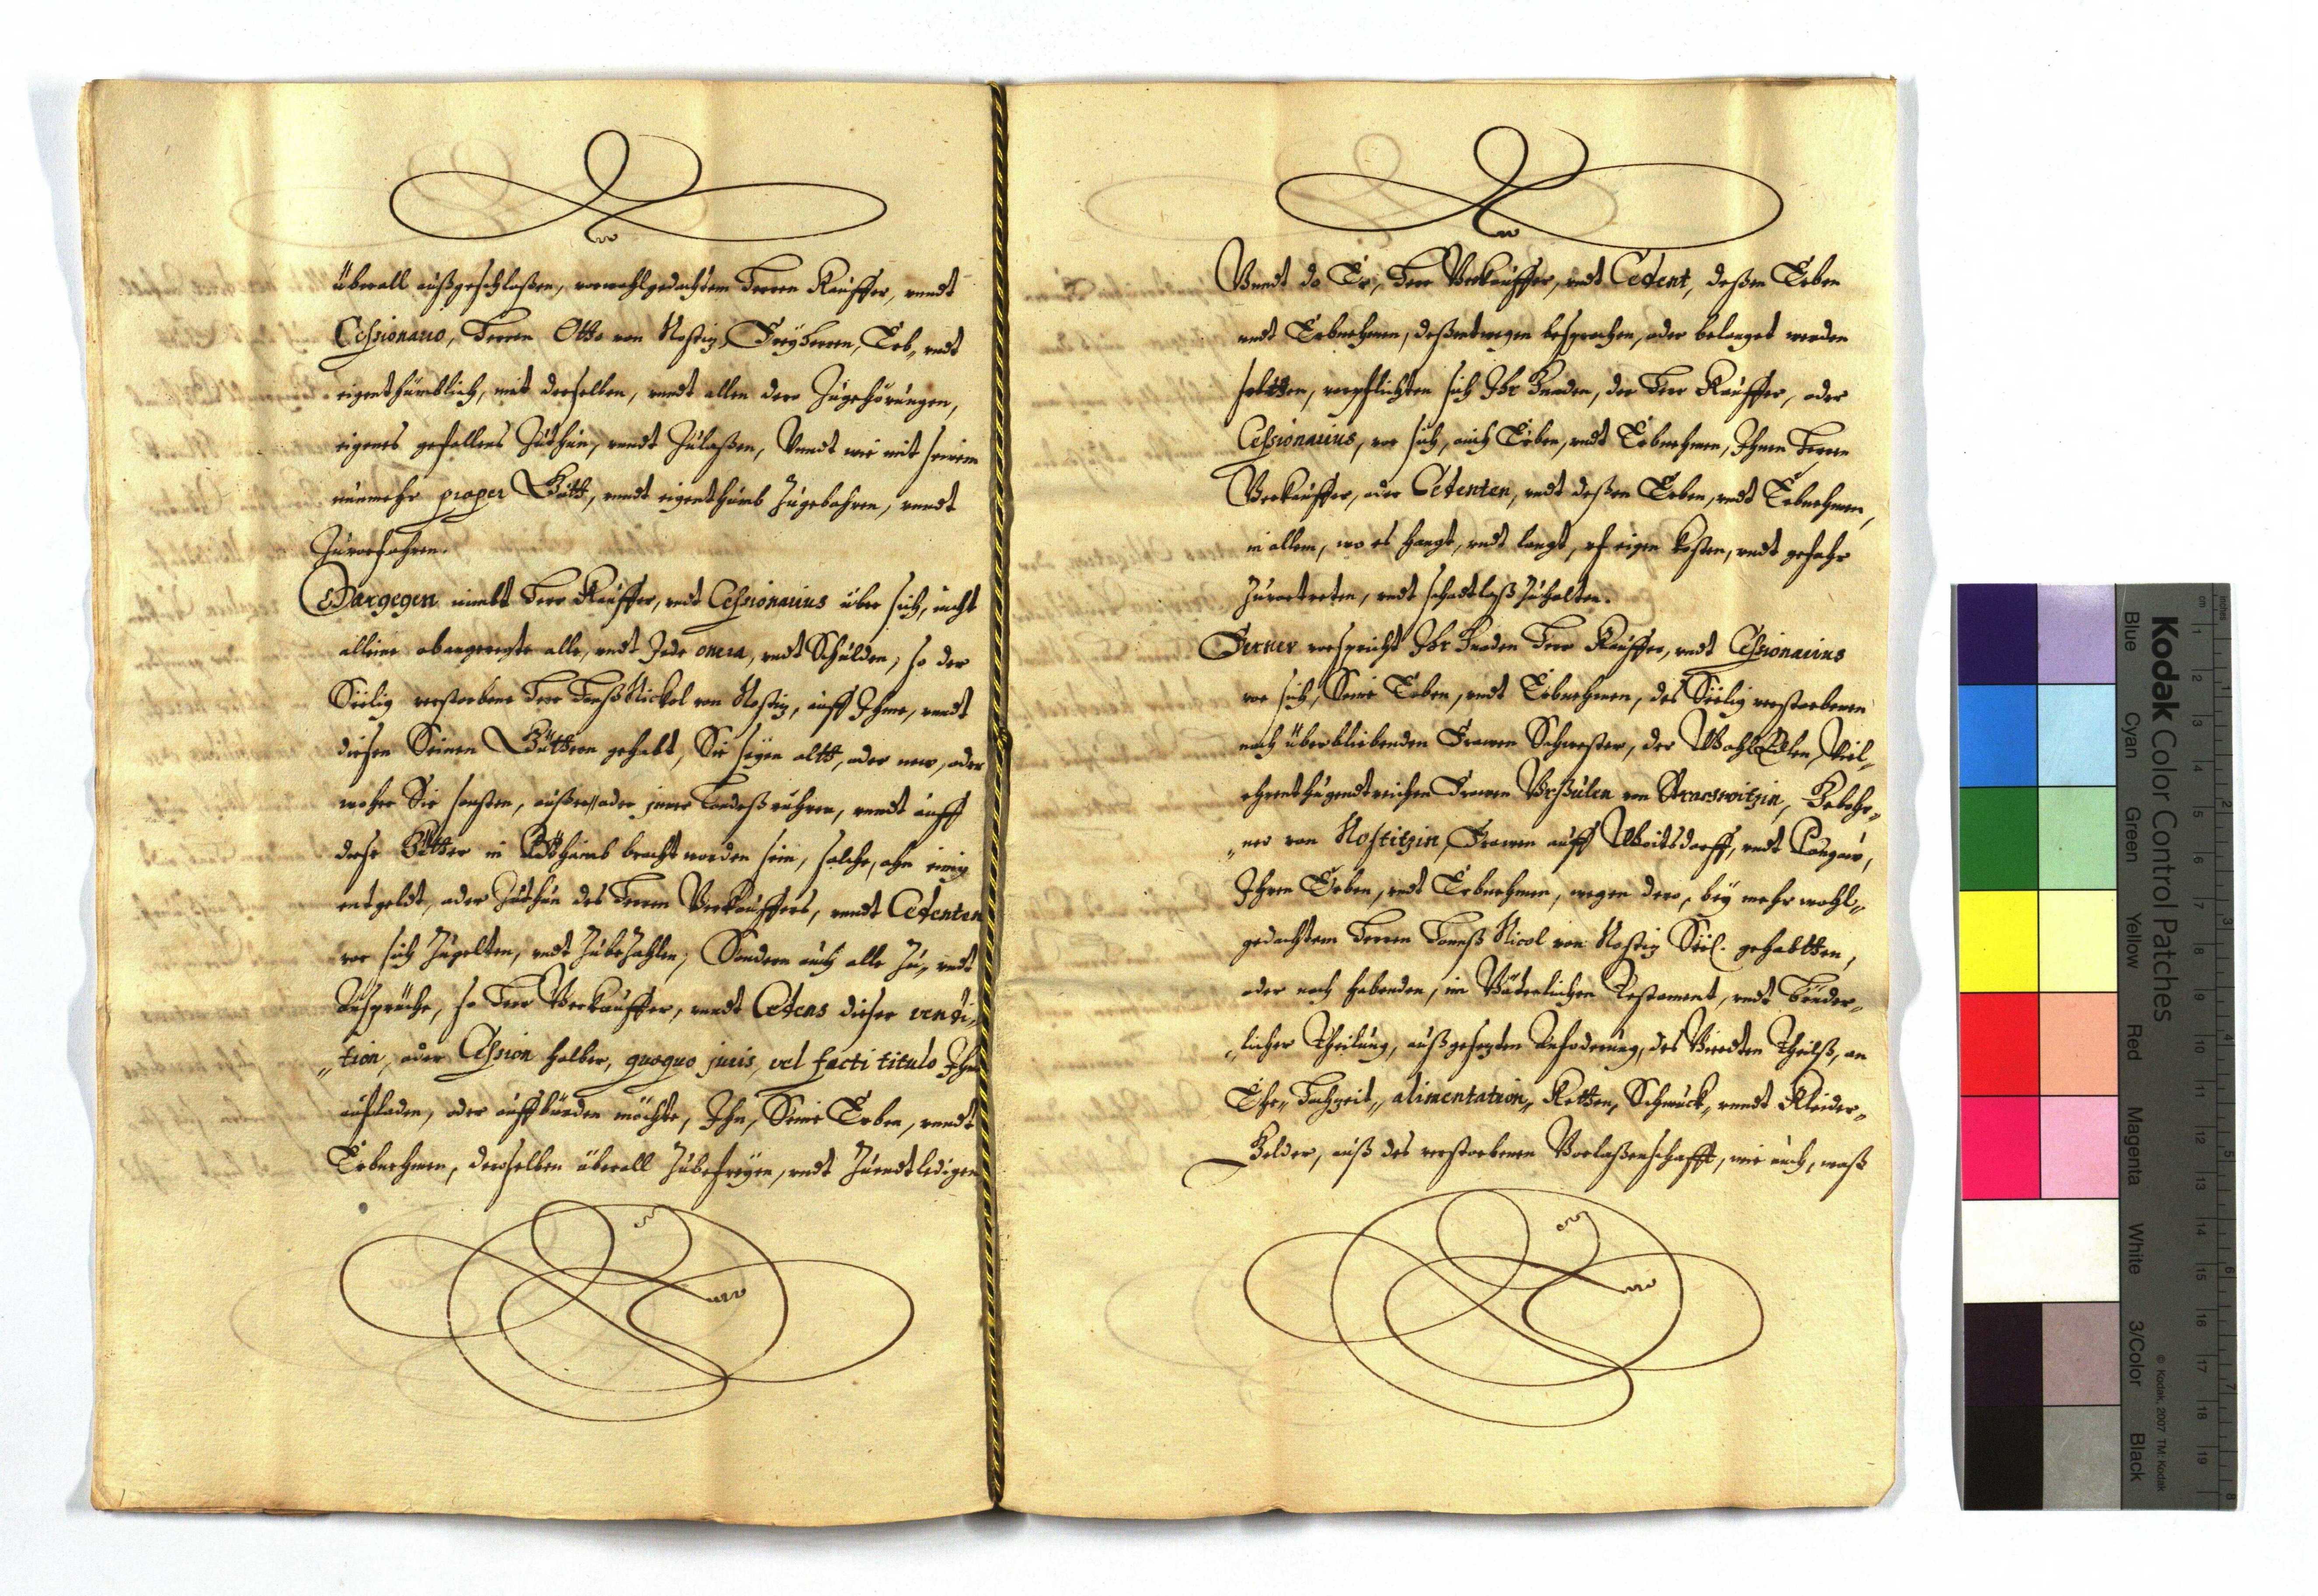 überall außgeschloßen, vorwohlgedachtem Herren Kauffer, vundt
Cessionario, Herren Otto von Nostiz Freyherren, Erb, vndt
eigenthümblich, mit derselben, vundt allen dero Zugehörungen,
eigenes gefallens Zuthun, vundt Zulaßen, Vundt wie mit seinem
nunmehr proper Gutt, vundt eigenthumb Zugebahren, vundt
Zuvorfahren.
Dargegen nimbt Herr Kauffer, vndt Cessionarius über sich, nicht
alleine obangeregte alle, vndt Jede onera, vndt Schulden, so der
Seelig verstorbene Herr Hanß Nickol von Nostiz, auff Ihme, vundt
diesen Seinen Güttern gehabt, Sie seyen altt, oder new, oder
woher Sie sonsten, außer oder inner Landeß rühren, vundt auff
diese Gütter in bracht worden sein, solche, ohn einig
entgeldt, oder Zuthun des Herren Verkauffers, vundt Cedenten
vor sich Zugelten, vndt Zubezahlen; Sondern auch alle Zu, vndt
Ansprüche, so Herr Verkauffer, vundt Cedens dieser vendi,,
,,tion, oder Cession halber, quoquo juris, vel facti titulo Ihm
aufladen, oder auffbürden möchte, Ihn, Seine Erben, vundt
Erbnehmen, derselben überall Zubefreyen, vndt Zuendtledigen
Vundt do Er, Herr Verkauffer, vndt Cedent, deßen Erben
vndt Erbnehmen, deßentwegen besprochen, oder belanget werden
soltten, verpflichten sich Ihr Gnaden, der Herr Kauffer, oder
Cessionarius, vor sich, auch Erben, vndt Erbnehmen, Ihnen Herren
Verkauffer, oder Cedenten, vndt deßen Erben, vndt Erbnehmen,
in allem, wo es hangt, vndt langt, vf eigen kosten, vndt gefahr
Zuvortreten, vndt schadtloß Zuhalten.
Ferner verspricht Ihr Gnaden Herr Kauffer, vndt Cessionarius
vor sich, Seine Erben, vndt Erbnehmen, des Seelig verstorbenen
noch überbliebenden Frawen Schwester, der WohlEdlen, Viel,,
ehrenthugendtreichen Frawen Vrsulen von Strarswitzin, Gebohr,,
,,ner von Nostitzin, Frawen auff Woitsdorff, vndt Langaw,
Ihren Erben, vndt Erbnehmen, wegen dero, bey mehr wohl,,
gedachtem Herren Hanß Nicol von Nostiz Seel. gehabtten,
oder noch habenden, im Väterlichen Testament, vndt Brüder,,
,,licher Theilung, außgesezten Anforderung, des Viredten Theilß, an
Ehe, Hochzeit,, alimentation,, Ketten, Schmuck, vundt Kleider,,
Gelder, auß des verstorbenen Vorlaßenschafft, wie auch, waß
Kodak Color Control Patches
Blue Cyan Green Yellow Red Magenta White 3/Color Black
© Kodak, 2007 TM: Kodak